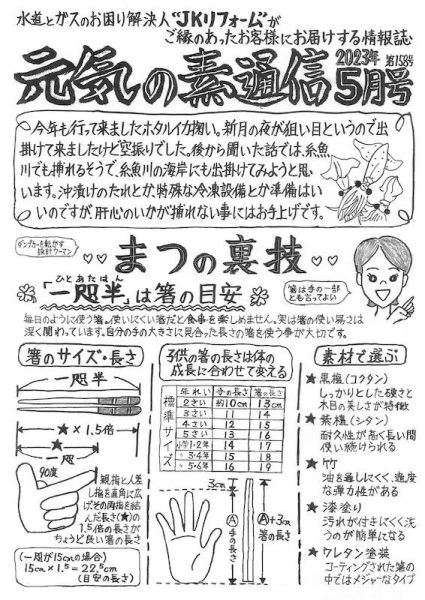 水道とガスのお困り解決人"JKリフォーム"が
ご縁のあったお客様にお届けする情報誌
元気の素通信
2023年
5月号
第158号
今年も行って来ましたホタルイカ掬い。新月の夜が狙い目というので出
掛けて来ましたけど空振りでした。後から聞いた話では、糸魚
川でも捕れるそうで、糸魚川の海岸にも出掛けてみようと思
います。沖漬けのたれとか、特殊な冷凍設備とか準備はい
いのですが肝心のいかが捕れない事にはお手上げです。
ダンプカーを転がす
設計ウーマン
まつの裏技
ひとあたはん
「一咫半」は箸の目安
箸は手の一部
とも言ってよい
毎日のように使う箸。使いにくい箸だと食事を楽しめません。実は箸の使い易さは
深く関わっています。自分の手の大きさに見合った長さの箸を使う事が大切です。
箸のサイズ・長さ
一咫半
★×1.5倍
★
一咫
90度
親指と人差
し指を直角に広
げ、その両指を結
んだ長さ(★)の
1.5倍の長さが
ちょうど良い箸の長さ
(一咫が15cmの場合)
15cm×1.5=22.5cm
(目安の長さ)
子供の箸の長さは体の
成長に合わせて変える
標準サイズ
年れい 手の長さ 箸の長さ
2さい 約10cm 13cm
3さい 11 14
4さい 12 15
5さい 13 16
小学1・2年 14 17
〃3・4年 15 18
〃5・6年 16 19
3cm
Ⓐ手の長さ
Ⓐ+3cm
箸の長さ
素材で選ぶ
★黒檀(コクタン)
しっかりとした硬さと
木目の美しさが特徴
★紫檀(シタン)
耐久性が高く長い間
使い続けられる
★竹
油を通しにくく、適度
な弾力性がある
★漆塗り
汚れが付きにくく洗
うのが簡単になる
★ウレタン塗装
コーティングされた箸の
中ではメジャーなタイプ